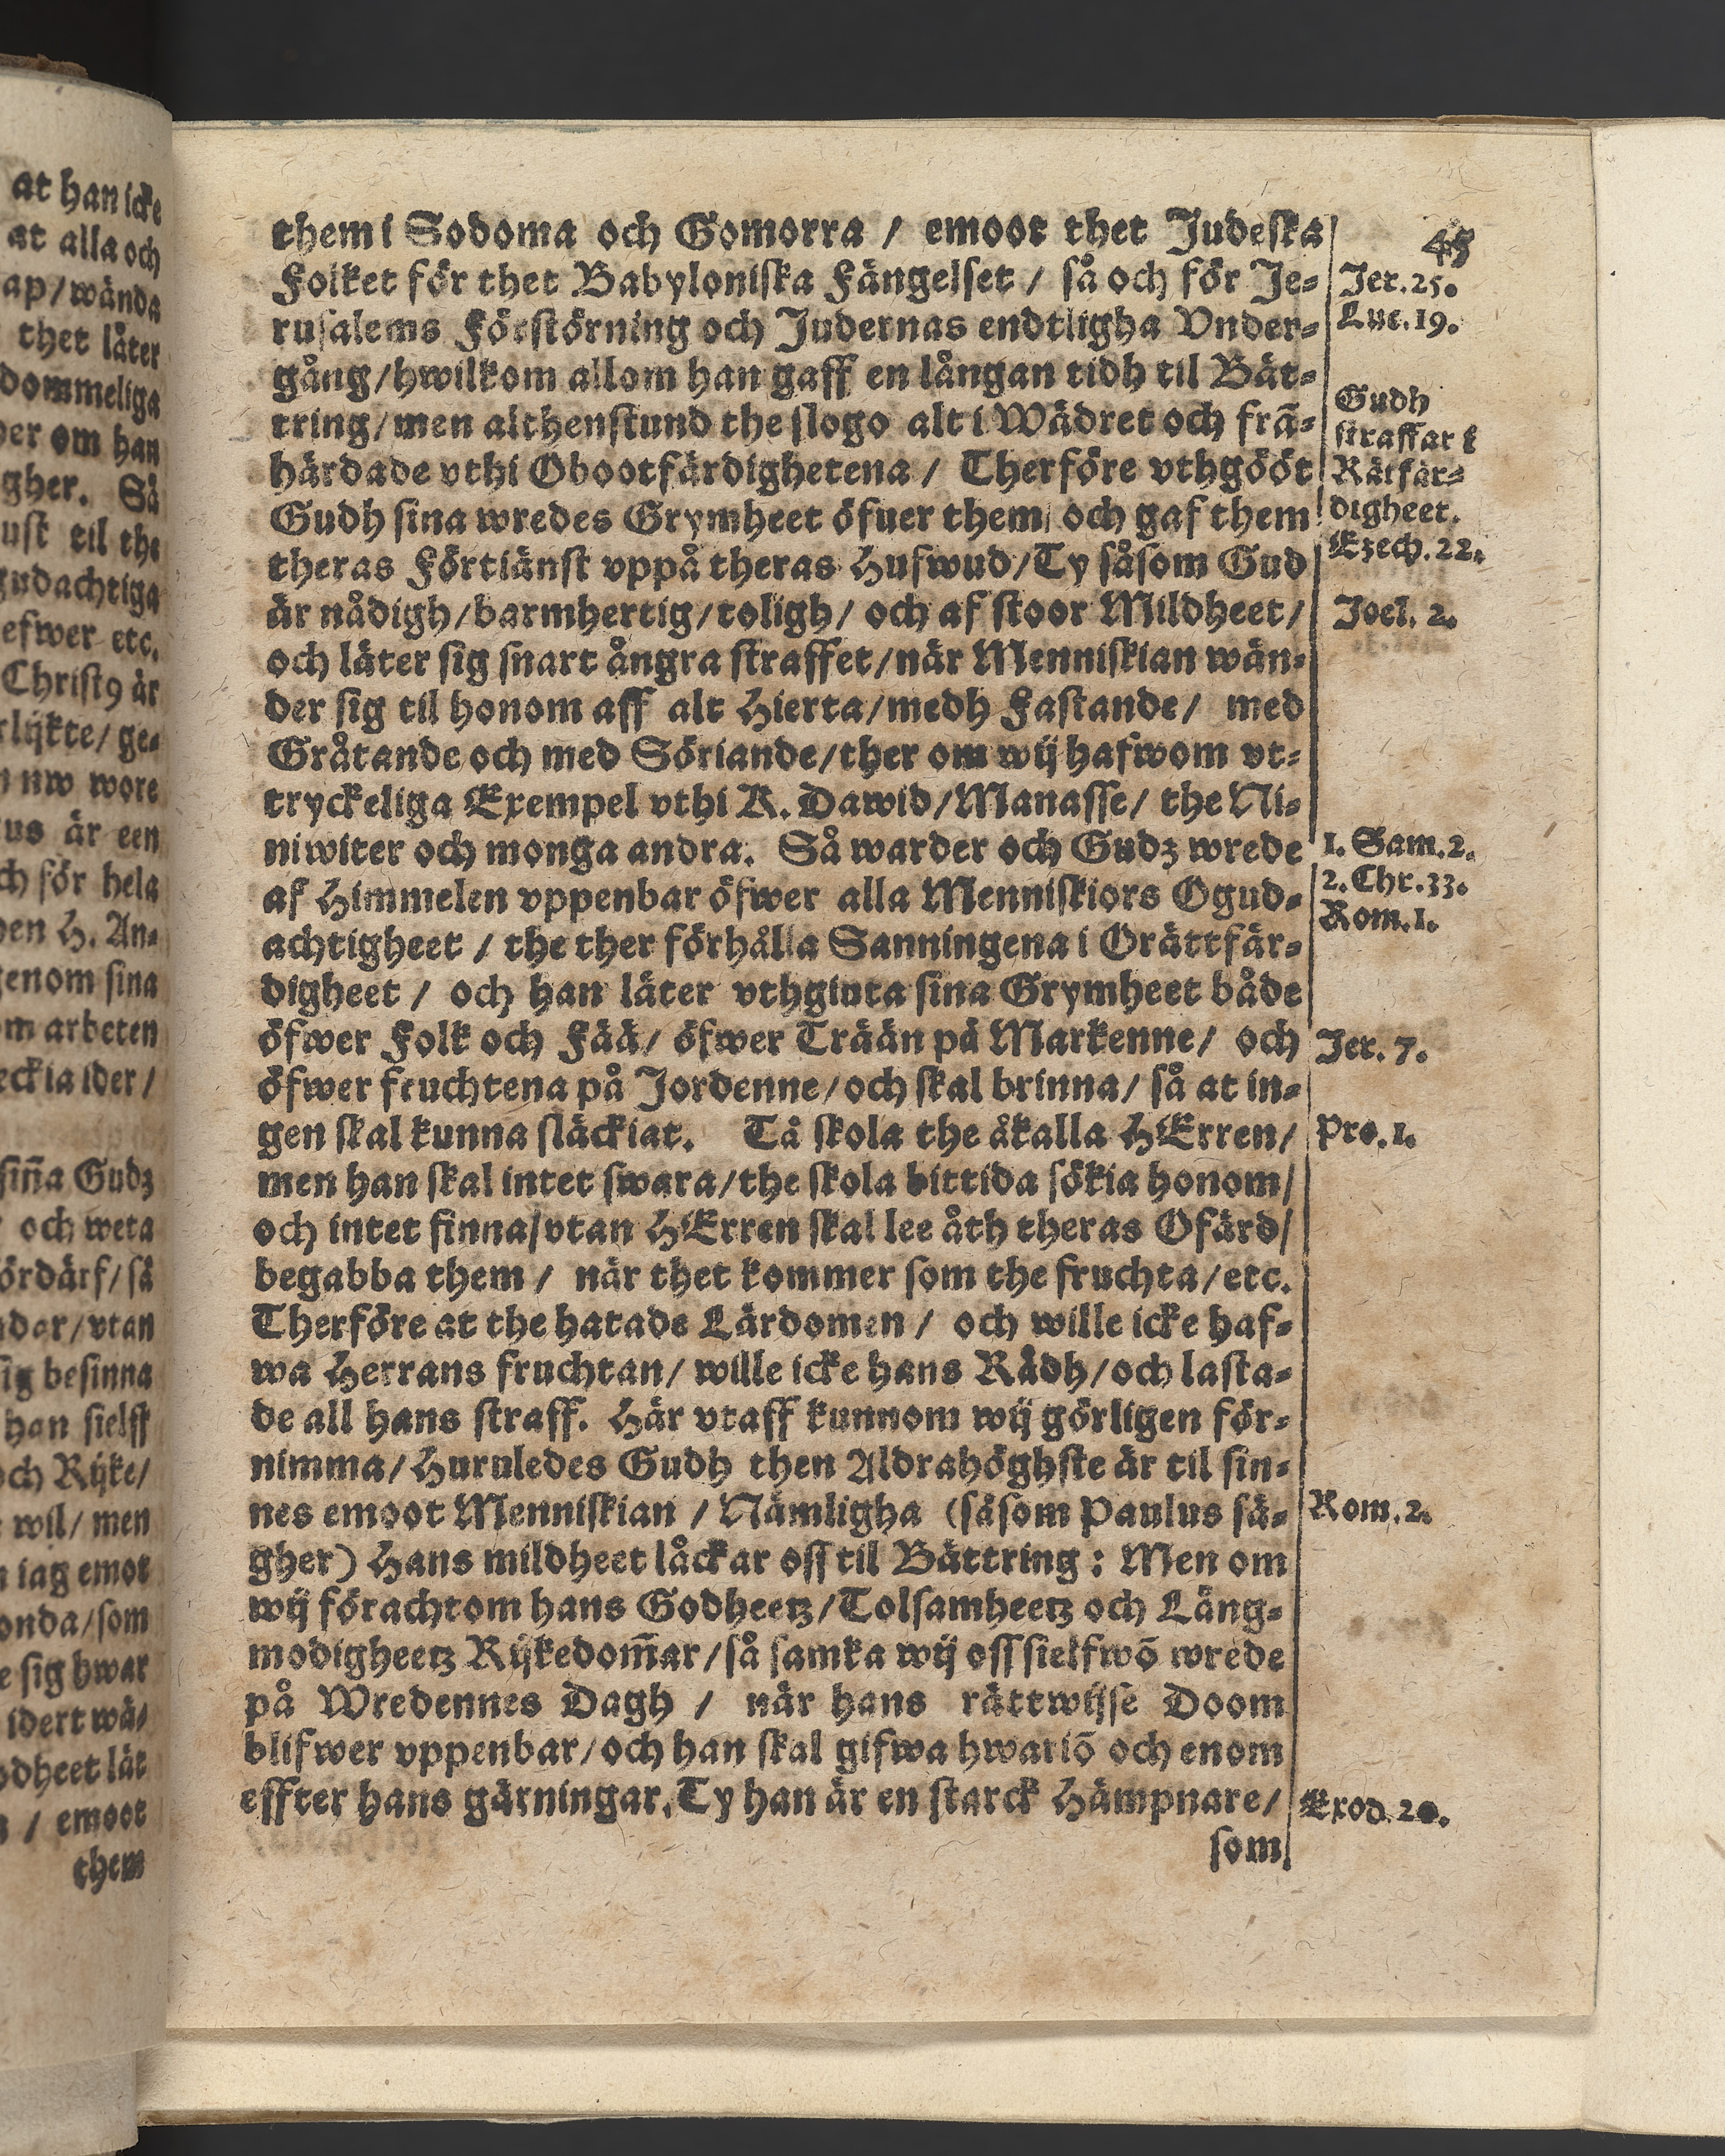 them i Sodoma och Gomorra / emoot thet Judeska
Folket för thet Babyloniska Fängelset / så och för Je-
rusalems Förstörning och Judernas endtligha Vnder-
gång/hwilkom allom han gaff en långan tidh til Bät-
tring/men althenstund the slogo alt i Wädret och frã-
härdade vthi Obootfärdighetena / Therföre vthgööt
Gudh sina wredes Grymheet öfuer them/ och gaf them
theras Förtiänst vppå theras Hufwud/Ty såsom Gud
är nådigh/barmhertig/toligh/ och af stoor Mildheet/
och läter sig snart ångra straffet/när Menniskian wän-
der sig til honom aff alt Hierta/medh Fastande/ med
Gråtande och med Söriande/ther om wij hafwom vt-
tryckeliga Exempel vthi K. Dawid/Manasse/ the Ni-
niwiter och monga andra. Så warder och Gudz wrede
af Himmelen vppenbar öfwer alla Menniskiors Ogud-
achtigheet / the ther förhålla Sanningena i Orättfär-
digheet / och han läter vthgiuta sina Grymheet både
öfwer Folk och Fää/ öfwer Trään på Markenne/ och
öfwer fruchtena på Jordenne/och skal brinna/ så at in-
gen skal kunna släckiat. Tå skola the åkalla HErren/
men han skal intet swara/the skola bittida sökia honom/
och intet finna/vtan HErren skal lee åth theras Ofärd/
begabba them / när thet kommer som the fruchta/etc.
Therföre at the hatade Lärdomen / och wille icke haf-
wa Herrans fruchtan/ wille icke hans Rådh/och lasta-
de all hans straff. Här vtaff kunnom wij görligen för-
nimma/Huruledes Gudh then Aldrahöghste är til sin-
nes emoot Menniskian / Nämligha (såsom Paulus sä-
gher) Hans mildheet låckar oss til Bättring : Men om
wij förachtom hans Godheetz/Tolsamheetz och Lång-
modigheetz Rijkedom̃ar/så samka wij oss sielfwõ wrede
på Wredennes Dagh / när hans rättwijse Doom
blifwer vppenbar/och han skal gifwa hwariõ och enom
effter hans gärningar. Ty han är en starck Hämpnare/
som
45
Jer. 25.
Luc. 19.
Gudh
straffar i
Rätfär-
digheet.
Ezech. 22.
Joel. 2.
1. Sam. 2.
2. Chr. 33.
Rom. 1.
Jer. 7.
Pro. 1.
Rom. 2.
Exod. 20.
at han icke
at alla och
ap/wända
thet låter
dommeliga
der om han
gher. Så
ust til the
gudachtiga
efwer etc.
Christ9 är
rlijkte/ ge-
nw wore
us är een
ch för hela
den H. An-
genom sina
om arbeten
eckia ider/
siña Gudz
och weta
ördärf/så
ndar/vtan
sig besinna
han sielff
och Rijke/
wil/ men
iag emot
onda/som
e sig hwar
idert wä/
odheet låt
/ emoot
them